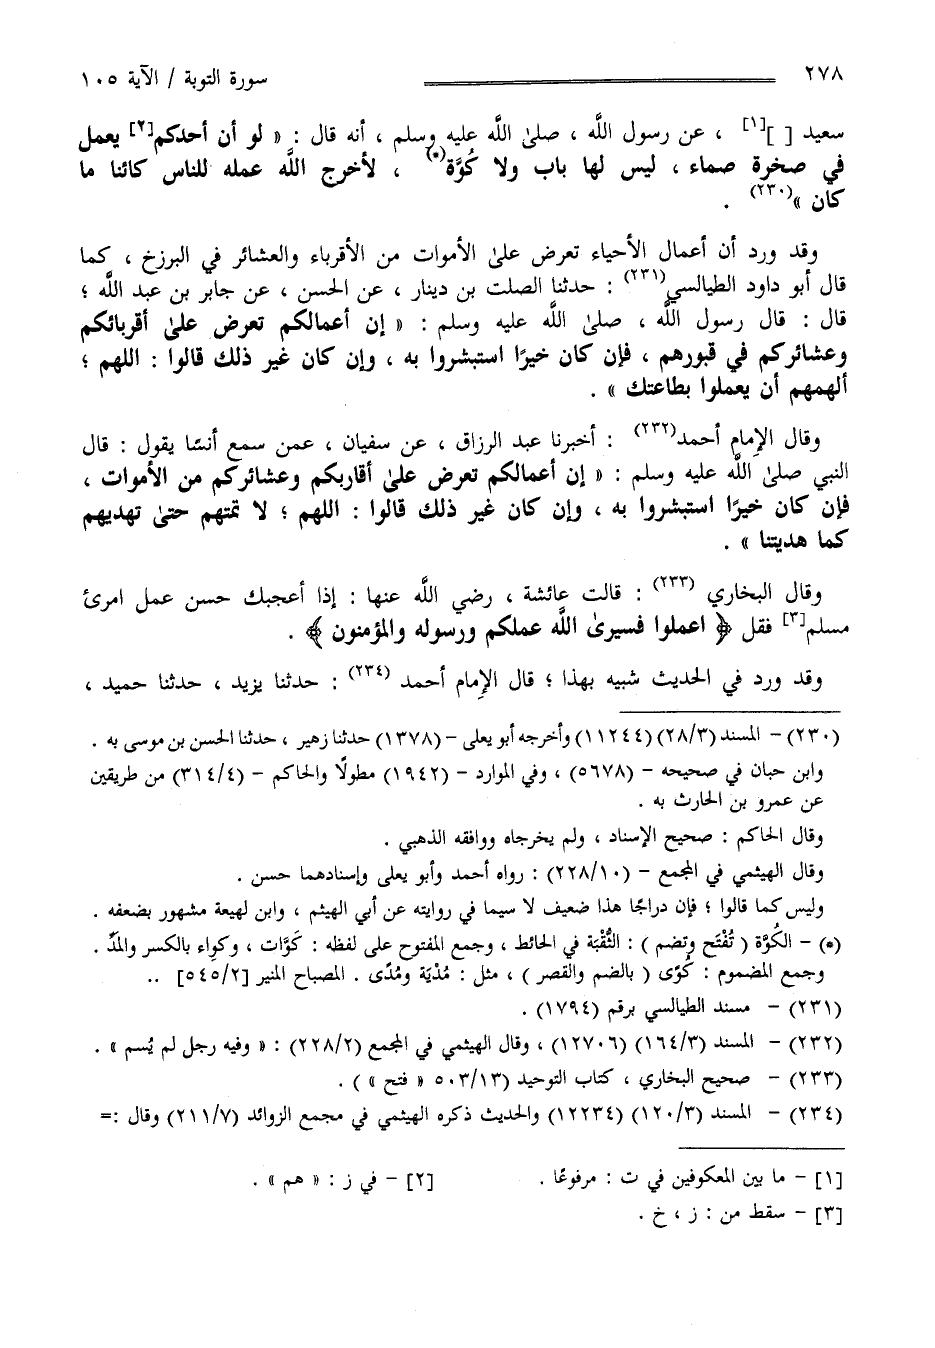 ٢٧٨ سورة التوبة / الآية ١٠٥
سعيد [ ][١] ، عن رسول اللَّه ، صلىٰ اللَّه عليه وسلم ، أنه قال : « لو أن أحدكم[٢] يعمل
في صخرة صماء ، ليس لها باب ولا كُوَّة(*) ، لأخرج اللَّه عمله للناس كائنا ما
كان »(٢٣٠) .
وقد ورد أن أعمال الأحياء تعرض علىٰ الأموات من الأقرباء والعشائر في البرزخ ، كما
قال أبو داود الطيالسي(٢٣١) : حدثنا الصلت بن دينار ، عن الحسن ، عن جابر بن عبد اللَّه ؛
قال : قال رسول اللَّه ، صلىٰ اللَّه عليه وسلم : « إن أعمالكم تعرض علىٰ أقربائكم
وعشائركم في قبورهم ، فإن كان خيرًا استبشروا به ، وإن كان غير ذلك قالوا : اللهم ؛
ألهمهم أن يعملوا بطاعتك » .
وقال الإمام أحمد(٢٣٢) : أخبرنا عبد الرزاق ، عن سفيان ، عمن سمع أنسًا يقول : قال
النبي صلىٰ اللَّه عليه وسلم : « إن أعمالكم تعرض علىٰ أقاربكم وعشائركم من الأموات ،
فإن كان خيرًا استبشروا به ، وإن كان غير ذلك قالوا : اللهم ؛ لا تمتهم حتىٰ تهديهم
كما هديتنا » .
وقال البخاري (٢٣٣) : قالت عائشة ، رضي اللَّه عنها : إذا أعجبك حسن عمل امرئ
مسلم[٣] فقل ﴿ اعملوا فسيرىٰ اللَّه عملكم ورسوله والمؤمنون ﴾ .
وقد ورد في الحديث شبيه بهذا ؛ قال الإمام أحمد (٢٣٤) : حدثنا يزيد ، حدثنا حميد ،
(٢٣٠) – المسند (٢٨/٣) (١١٢٤٤) وأخرجه أبو يعلى – (١٣٧٨) حدثنا زهير ، حدثنا الحسن بن موسى به .
وابن حبان في صحيحه – (٥٦٧٨) ، وفي الموارد – (١٩٤٢) مطولًا والحاكم – (٣١٤/٤) من طريقين
عن عمرو بن الحارث به .
وقال الحاكم : صحيح الإسناد ، ولم يخرجاه ووافقه الذهبي .
وقال الهيثمي في المجمع – (٢٢٨/١٠) : رواه أحمد وأبو يعلى وإسنادهما حسن .
وليس كما قالوا ؛ فإن دراجًا هذا ضعيف لا سيما في روايته عن أبي الهيثم ، وابن لهيعة مشهور بضعفه .
(*) – الكُوَّة ( تُفْتَح وتضم ) : الثُّقْبَة في الحائط ، وجمع المفتوح على لفظه : كَوَّات ، وكواء بالكسر والمدّ .
وجمع المضموم : كُوًى ( بالضم والقصر ) ، مثل : مُدْيَة ومُدًى . المصباح المنير [٥٤٥/٢] ..
(٢٣١) – مسند الطيالسي برقم (١٧٩٤) .
(٢٣٢) – المسند (١٦٤/٣) (١٢٧٠٦) ، وقال الهيثمي في المجمع (٢٢٨/٢) : « وفيه رجل لم يُسم » .
(٢٣٣) – صحيح البخاري ، كتاب التوحيد (٥٠٣/١٣ « فتح » ) .
(٢٣٤) – المسند (١٢٠/٣) (١٢٢٣٤) والحديث ذكره الهيثمي في مجمع الزوائد (٢١١/٧) وقال :=
[١] – ما بين المعكوفين في ت : مرفوعًا . [٢] – في ز : « هم » .
[٣] – سقط من : ز ، خ .